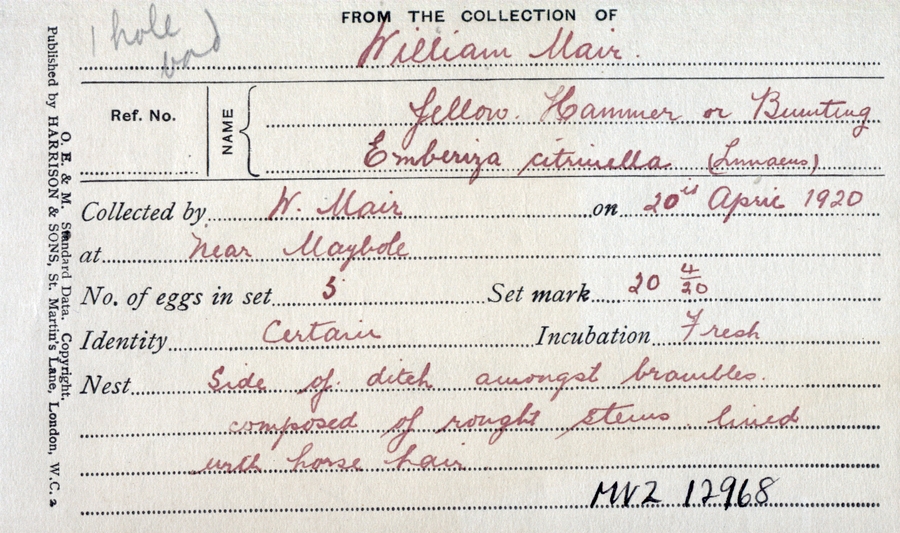 1 hole
bad
FROM THE COLLECTION OF
William Mair.
Ref. No.
NAME
Yellow. Hammer or Bunting
Emberiza citrinella (Linnaeus)
Collected by W. Mair on 20th April 1920
at Near Maybole
No. of eggs in set 5 Set mark 20 4/20
Identity Certain Incubation Fresh
Nest Side of ditch amongst brambles.
composed of rought stems. lined
with horse hair
MVZ 12968
O. E. & M. Standard Data. Copyright.
Published by HARRISON & SONS, St. Martin's Lane, London, W.C. 2